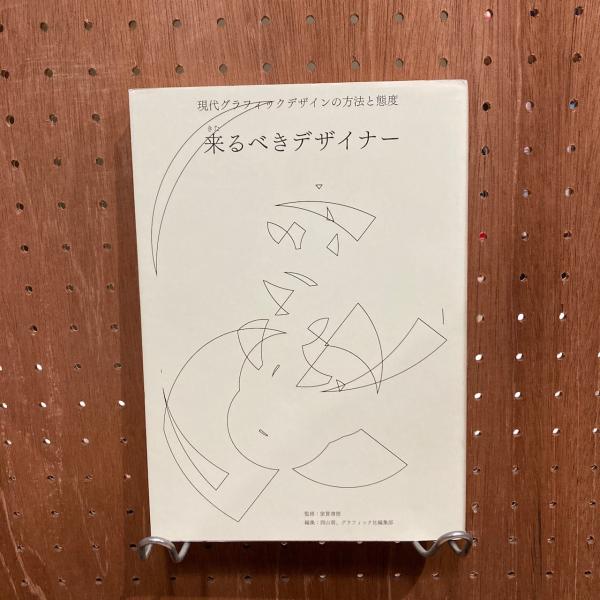 現代グラフィックデザインの方法と態度
きた
来るべきデザイナー
監修:室賀清徳
編集:西山萌、グラフィック社編集部